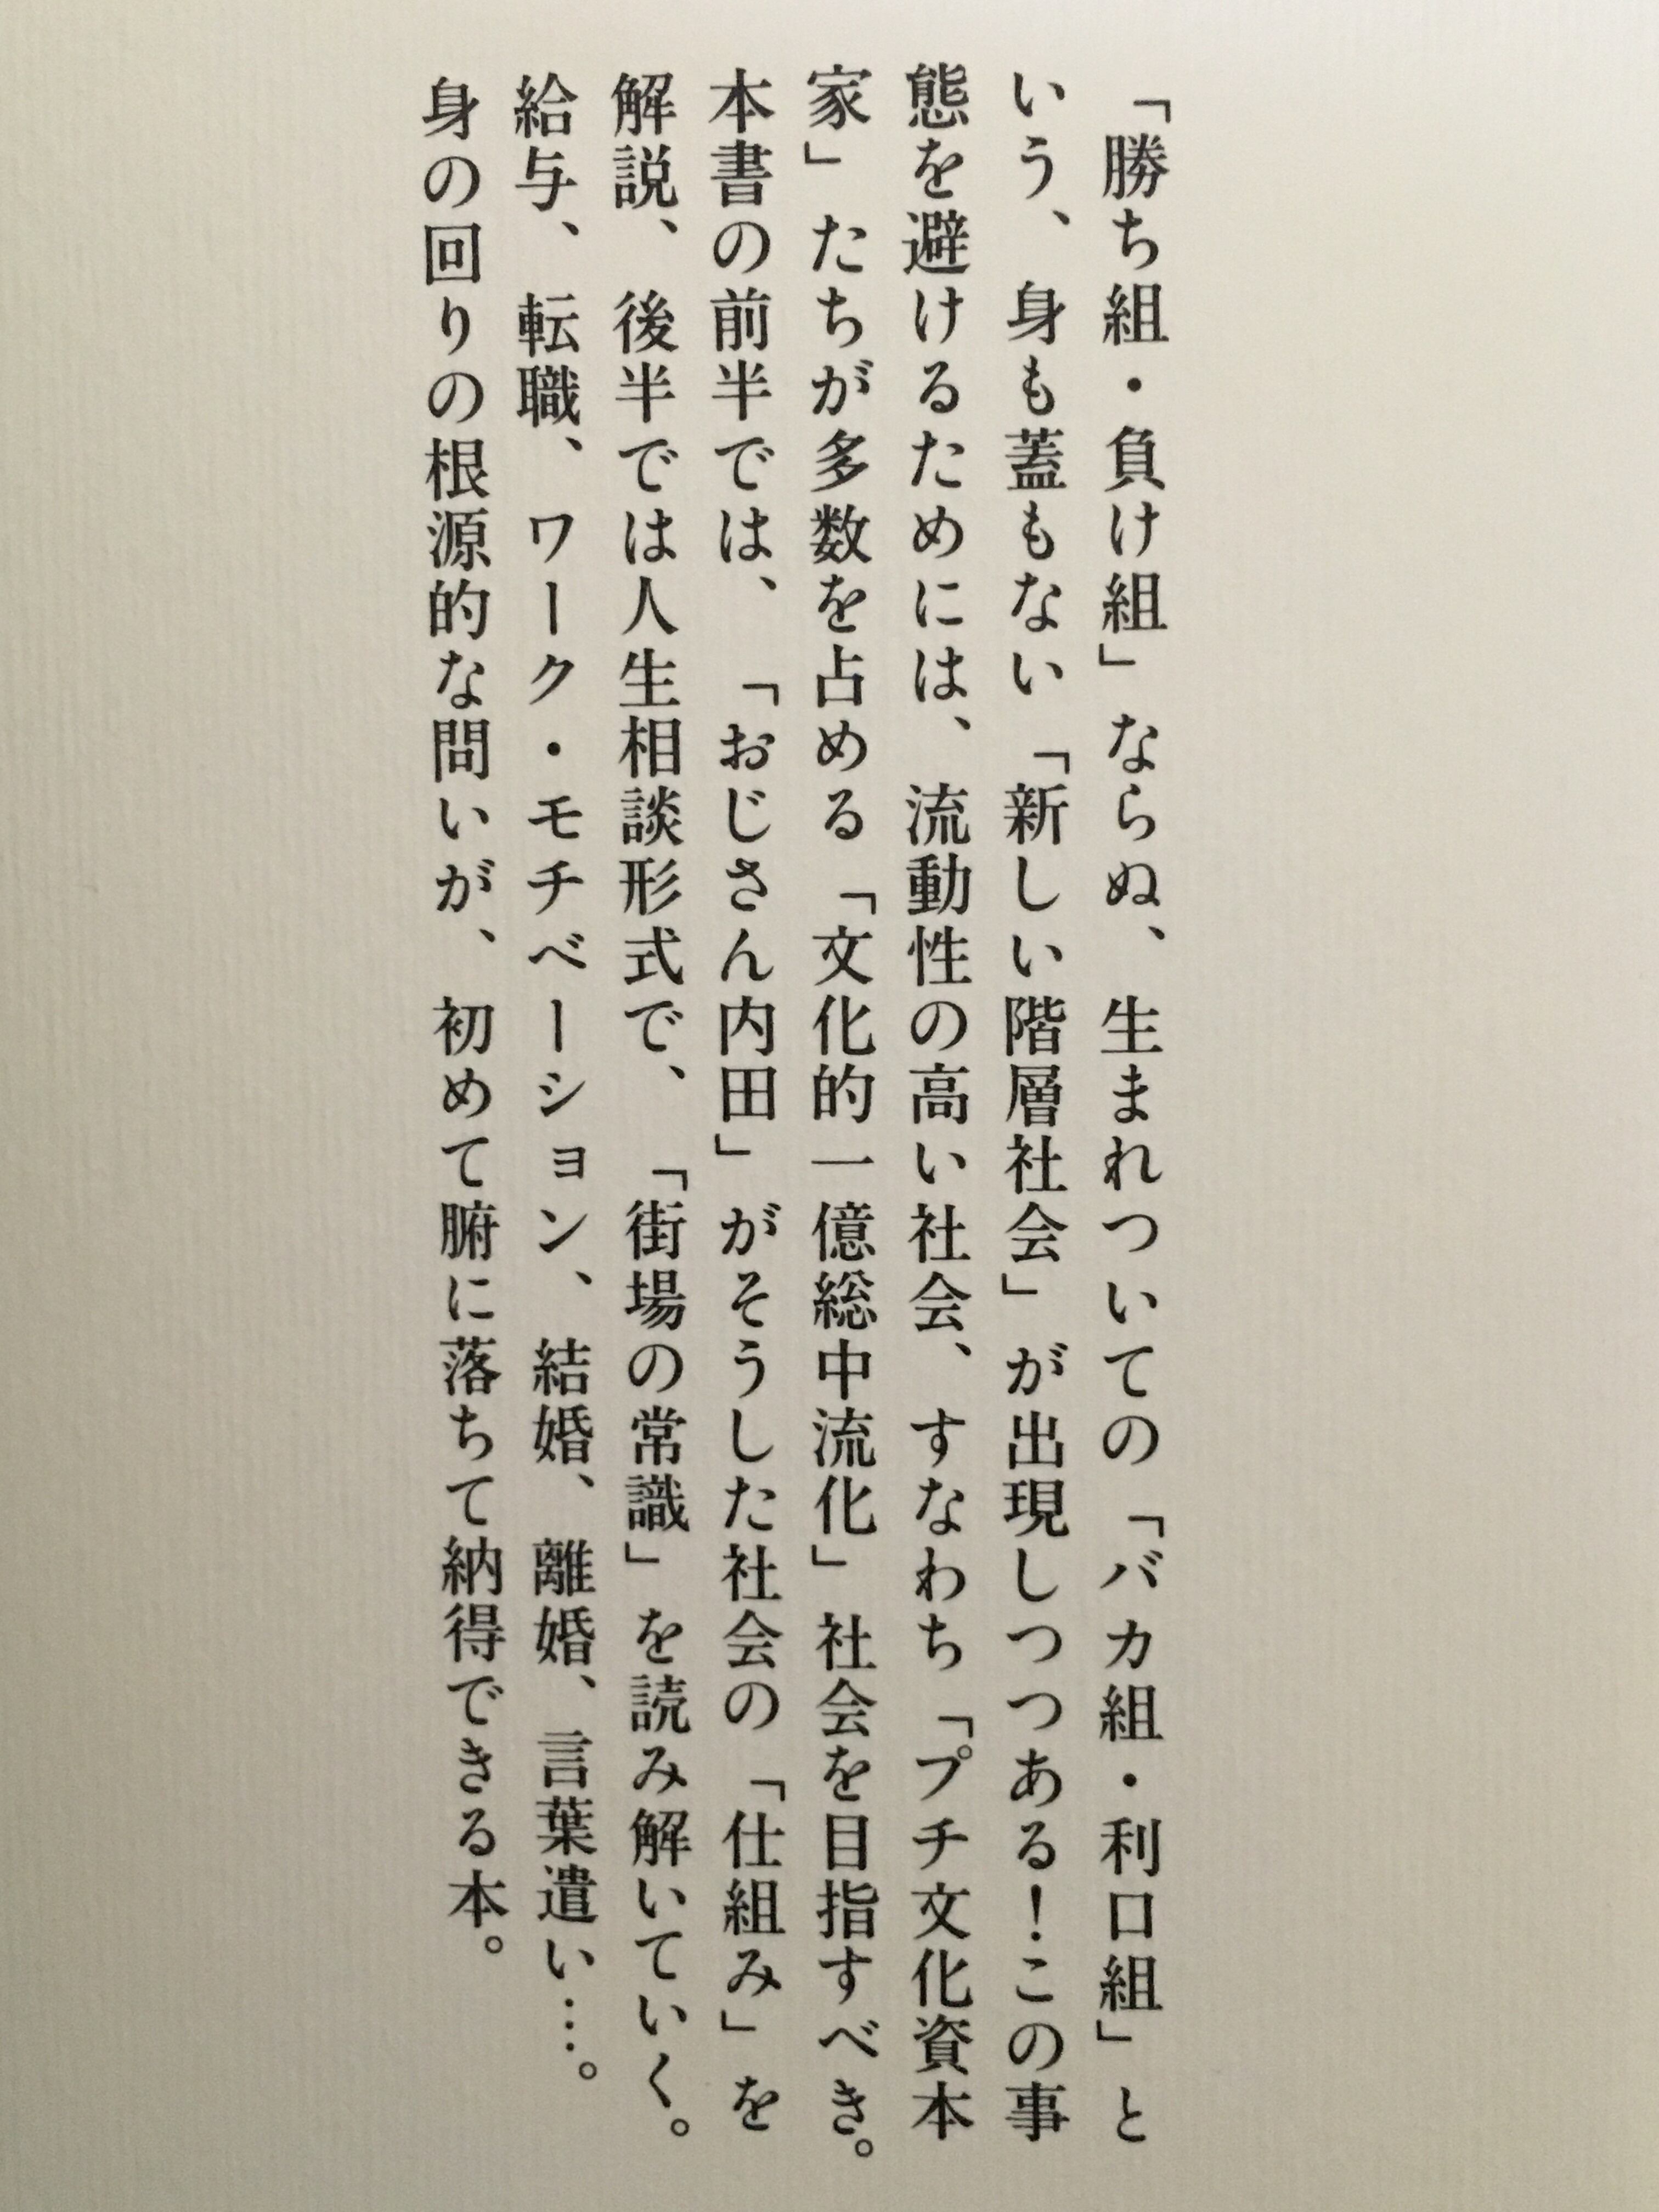 「勝ち組・負け組」ならぬ、生まれついての「バカ組・利口組」と
いう、身も蓋もない「新しい階層社会」が出現しつつある！この事
態を避けるためには、流動性の高い社会、すなわち「プチ文化資本
家」たちが多数を占める「文化的一億総中流化」社会を目指すべき。
本書の前半では、「おじさん内田」がそうした社会の「仕組み」を
解説、後半では人生相談形式で、「街場の常識」を読み解いていく。
給与、転職、ワーク・モチベーション、結婚、離婚、言葉遣い…。
身の回りの根源的な問いが、初めて腑に落ちて納得できる本。